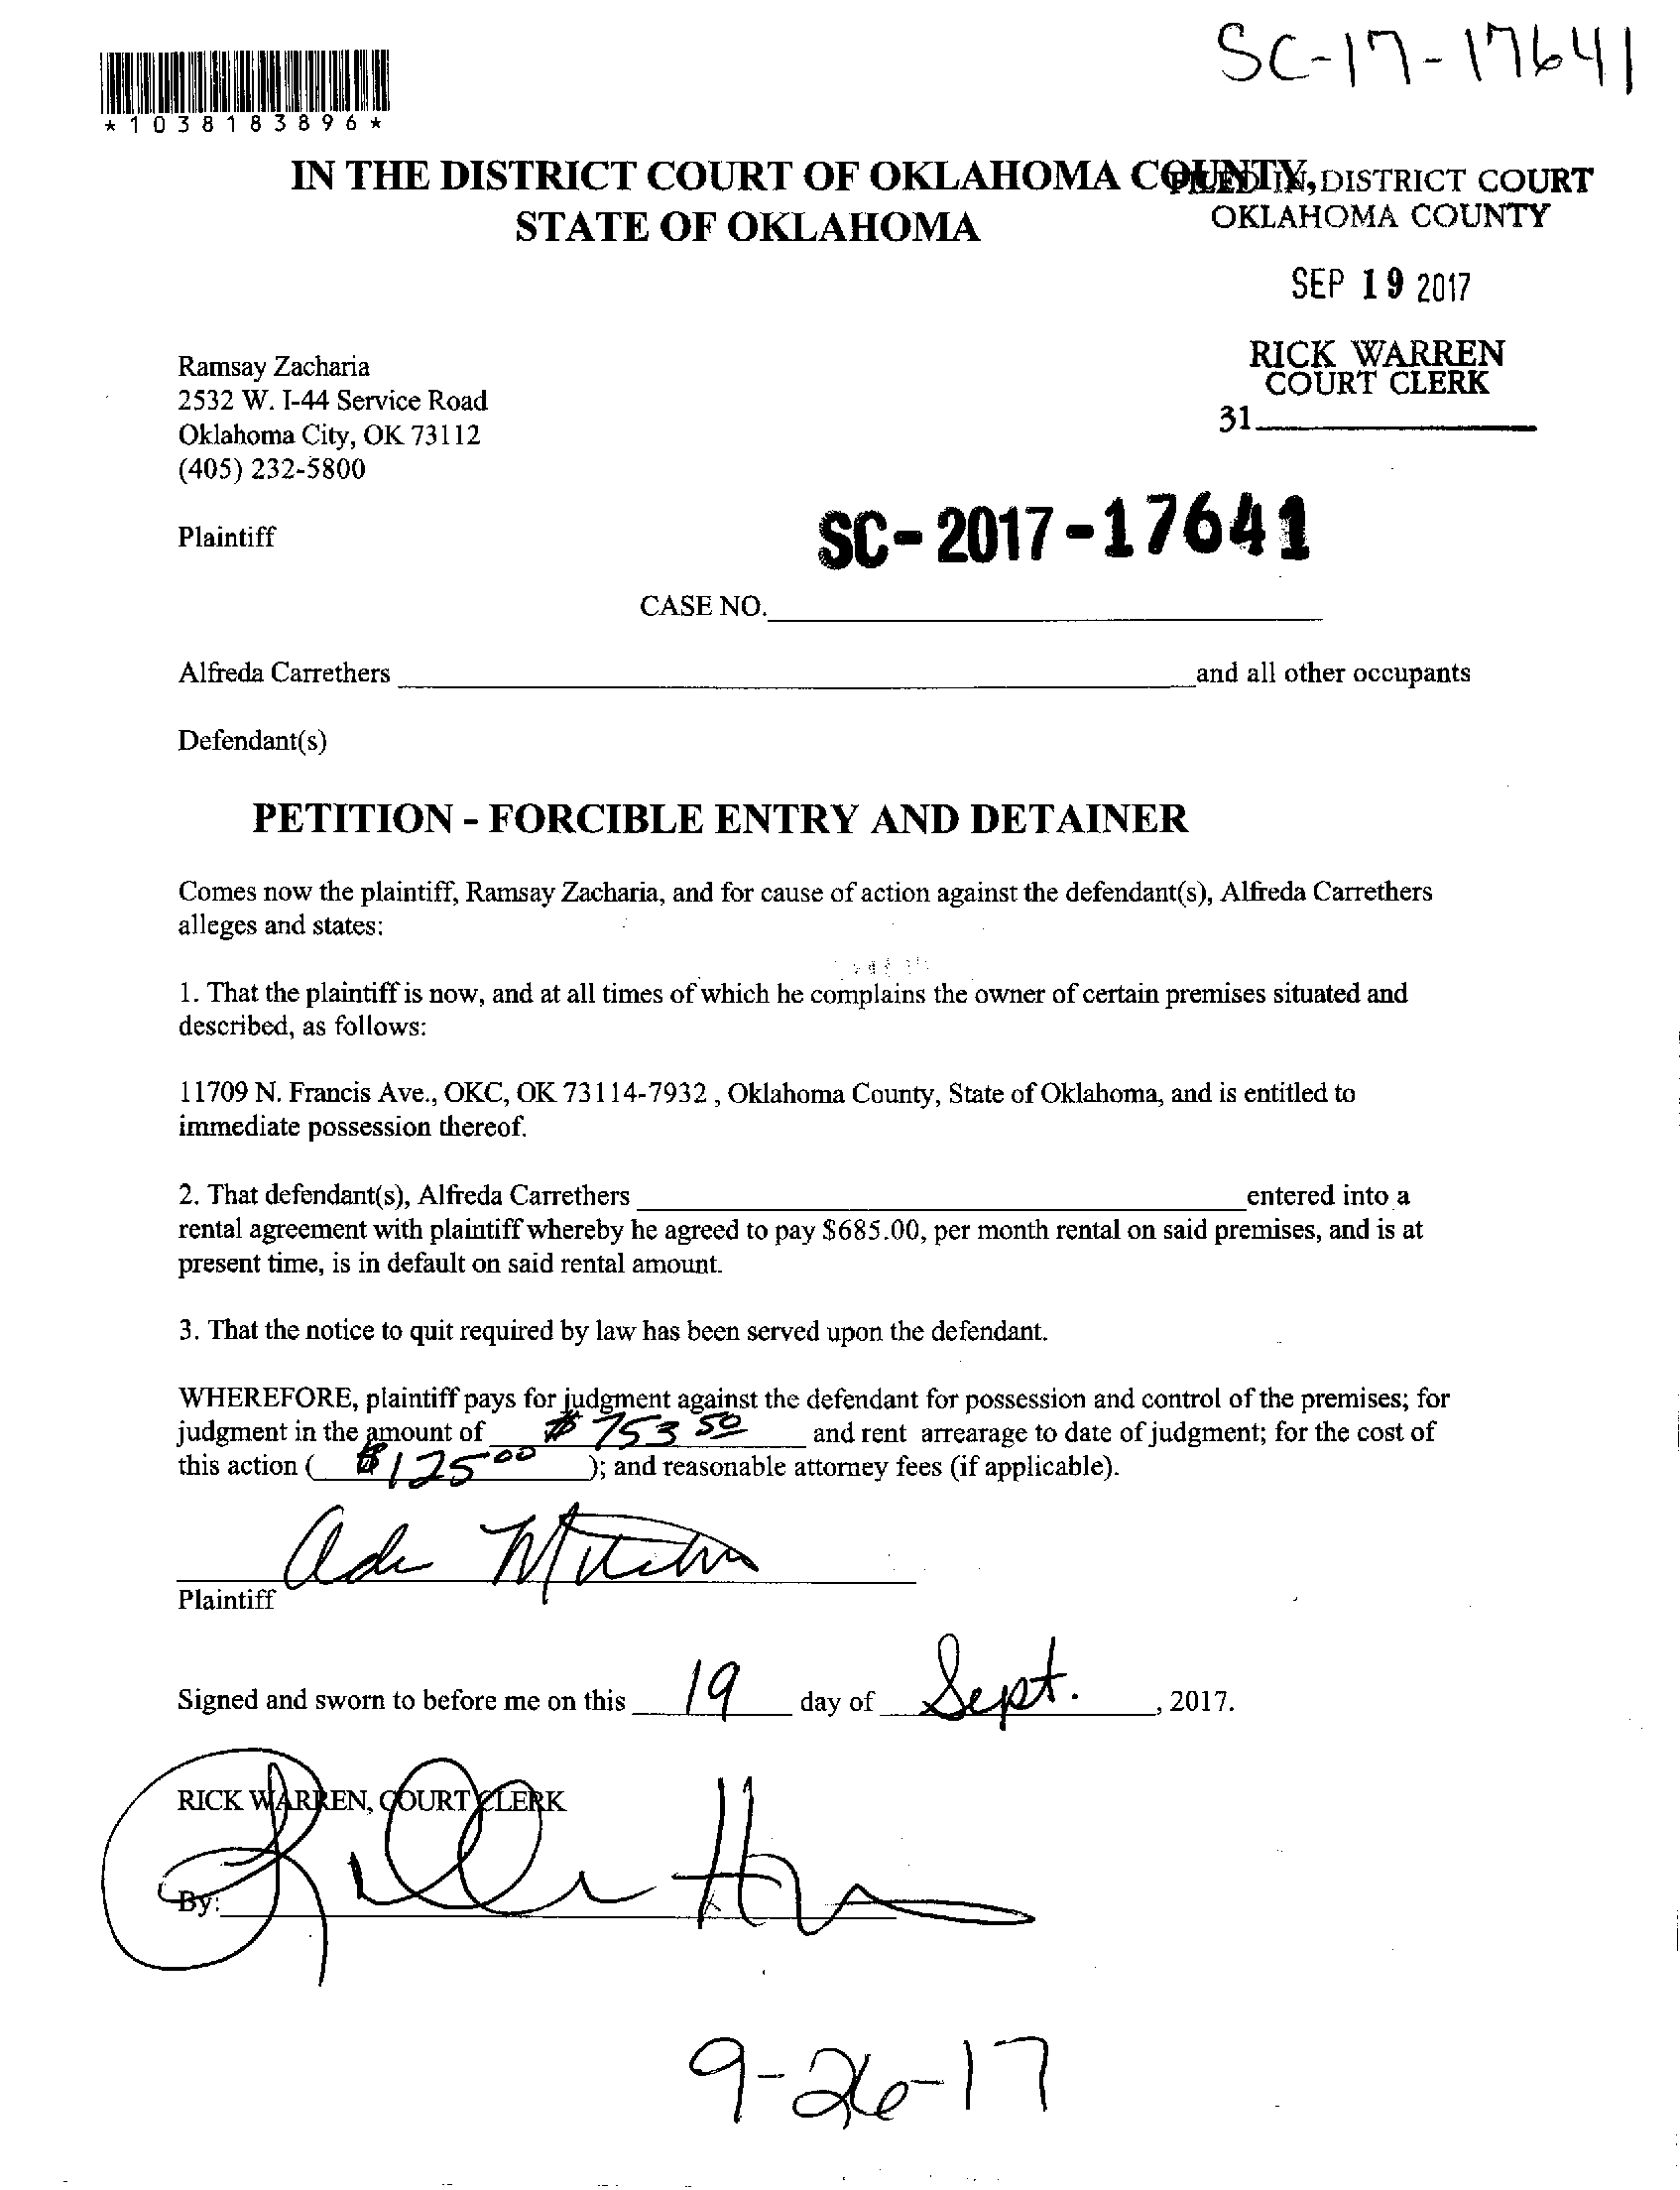 SC-17-17641
*1038183896*
IN THE DISTRICT COURT OF OKLAHOMA COUNTY,
STATE OF OKLAHOMA
FILED IN DISTRICT COURT
OKLAHOMA COUNTY
SEP 19 2017
RICK WARREN
COURT CLERK
31
Ramsay Zacharia
2532 W. I-44 Service Road
Oklahoma City, OK 73112
(405) 232-5800
Plaintiff
SC-2017-17641
CASE NO.
Alfreda Carrethers and all other occupants
Defendant(s)
PETITION - FORCIBLE ENTRY AND DETAINER
Comes now the plaintiff, Ramsay Zacharia, and for cause of action against the defendant(s), Alfreda Carrethers
alleges and states:
1. That the plaintiff is now, and at all times of which he complains the owner of certain premises situated and
described, as follows:
11709 N. Francis Ave., OKC, OK 73114-7932 , Oklahoma County, State of Oklahoma, and is entitled to
immediate possession thereof.
2. That defendant(s), Alfreda Carrethers entered into a
rental agreement with plaintiff whereby he agreed to pay $685.00, per month rental on said premises, and is at
present time, is in default on said rental amount.
3. That the notice to quit required by law has been served upon the defendant.
WHEREFORE, plaintiff pays for judgment against the defendant for possession and control of the premises; for
judgment in the amount of $753 50 and rent arrearage to date of judgment; for the cost of
this action ( $125 00 ); and reasonable attorney fees (if applicable).
Plaintiff
Signed and sworn to before me on this 19 day of Sept. , 2017.
RICK WARREN, COURT CLERK
By:
9-26-17